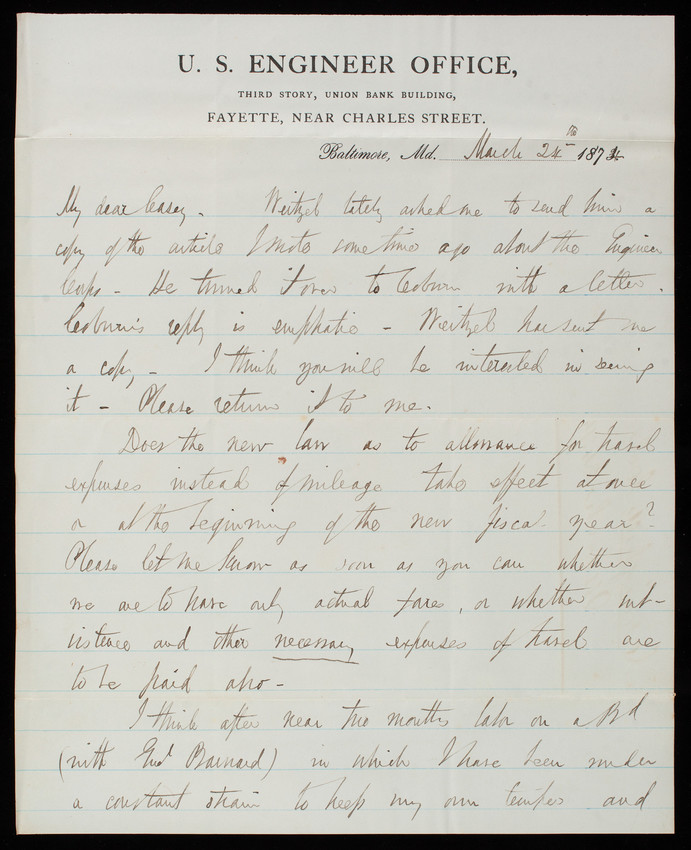 U. S. ENGINEER OFFICE,
THIRD STORY, UNION BANK BUILDING,
FAYETTE, NEAR CHARLES STREET.
Baltimore, Md. March 24th 1874
My dear Casey. Weitzel lately asked me to send him a
copy of the article I wrote some time ago about the Engineer
Corps - He turned it over to Coburn with a letter.
Coburn's reply is emphatic - Weitzel has sent me
a copy - I think you will be interested in seeing
it - Please return it to me.
Does the new law as to allowance for travel
expenses instead of mileage take effect at once
or at the beginning of the new fiscal year?
Please let me know as soon as you can whether
we are to have only actual fares, or whether sub-
sistence and other necessary expenses of travel are
to be paid also -
I think after near two months labor on a Bd
(with Genl Barnard) in which I have been under
a constant strain to keep my own temper and